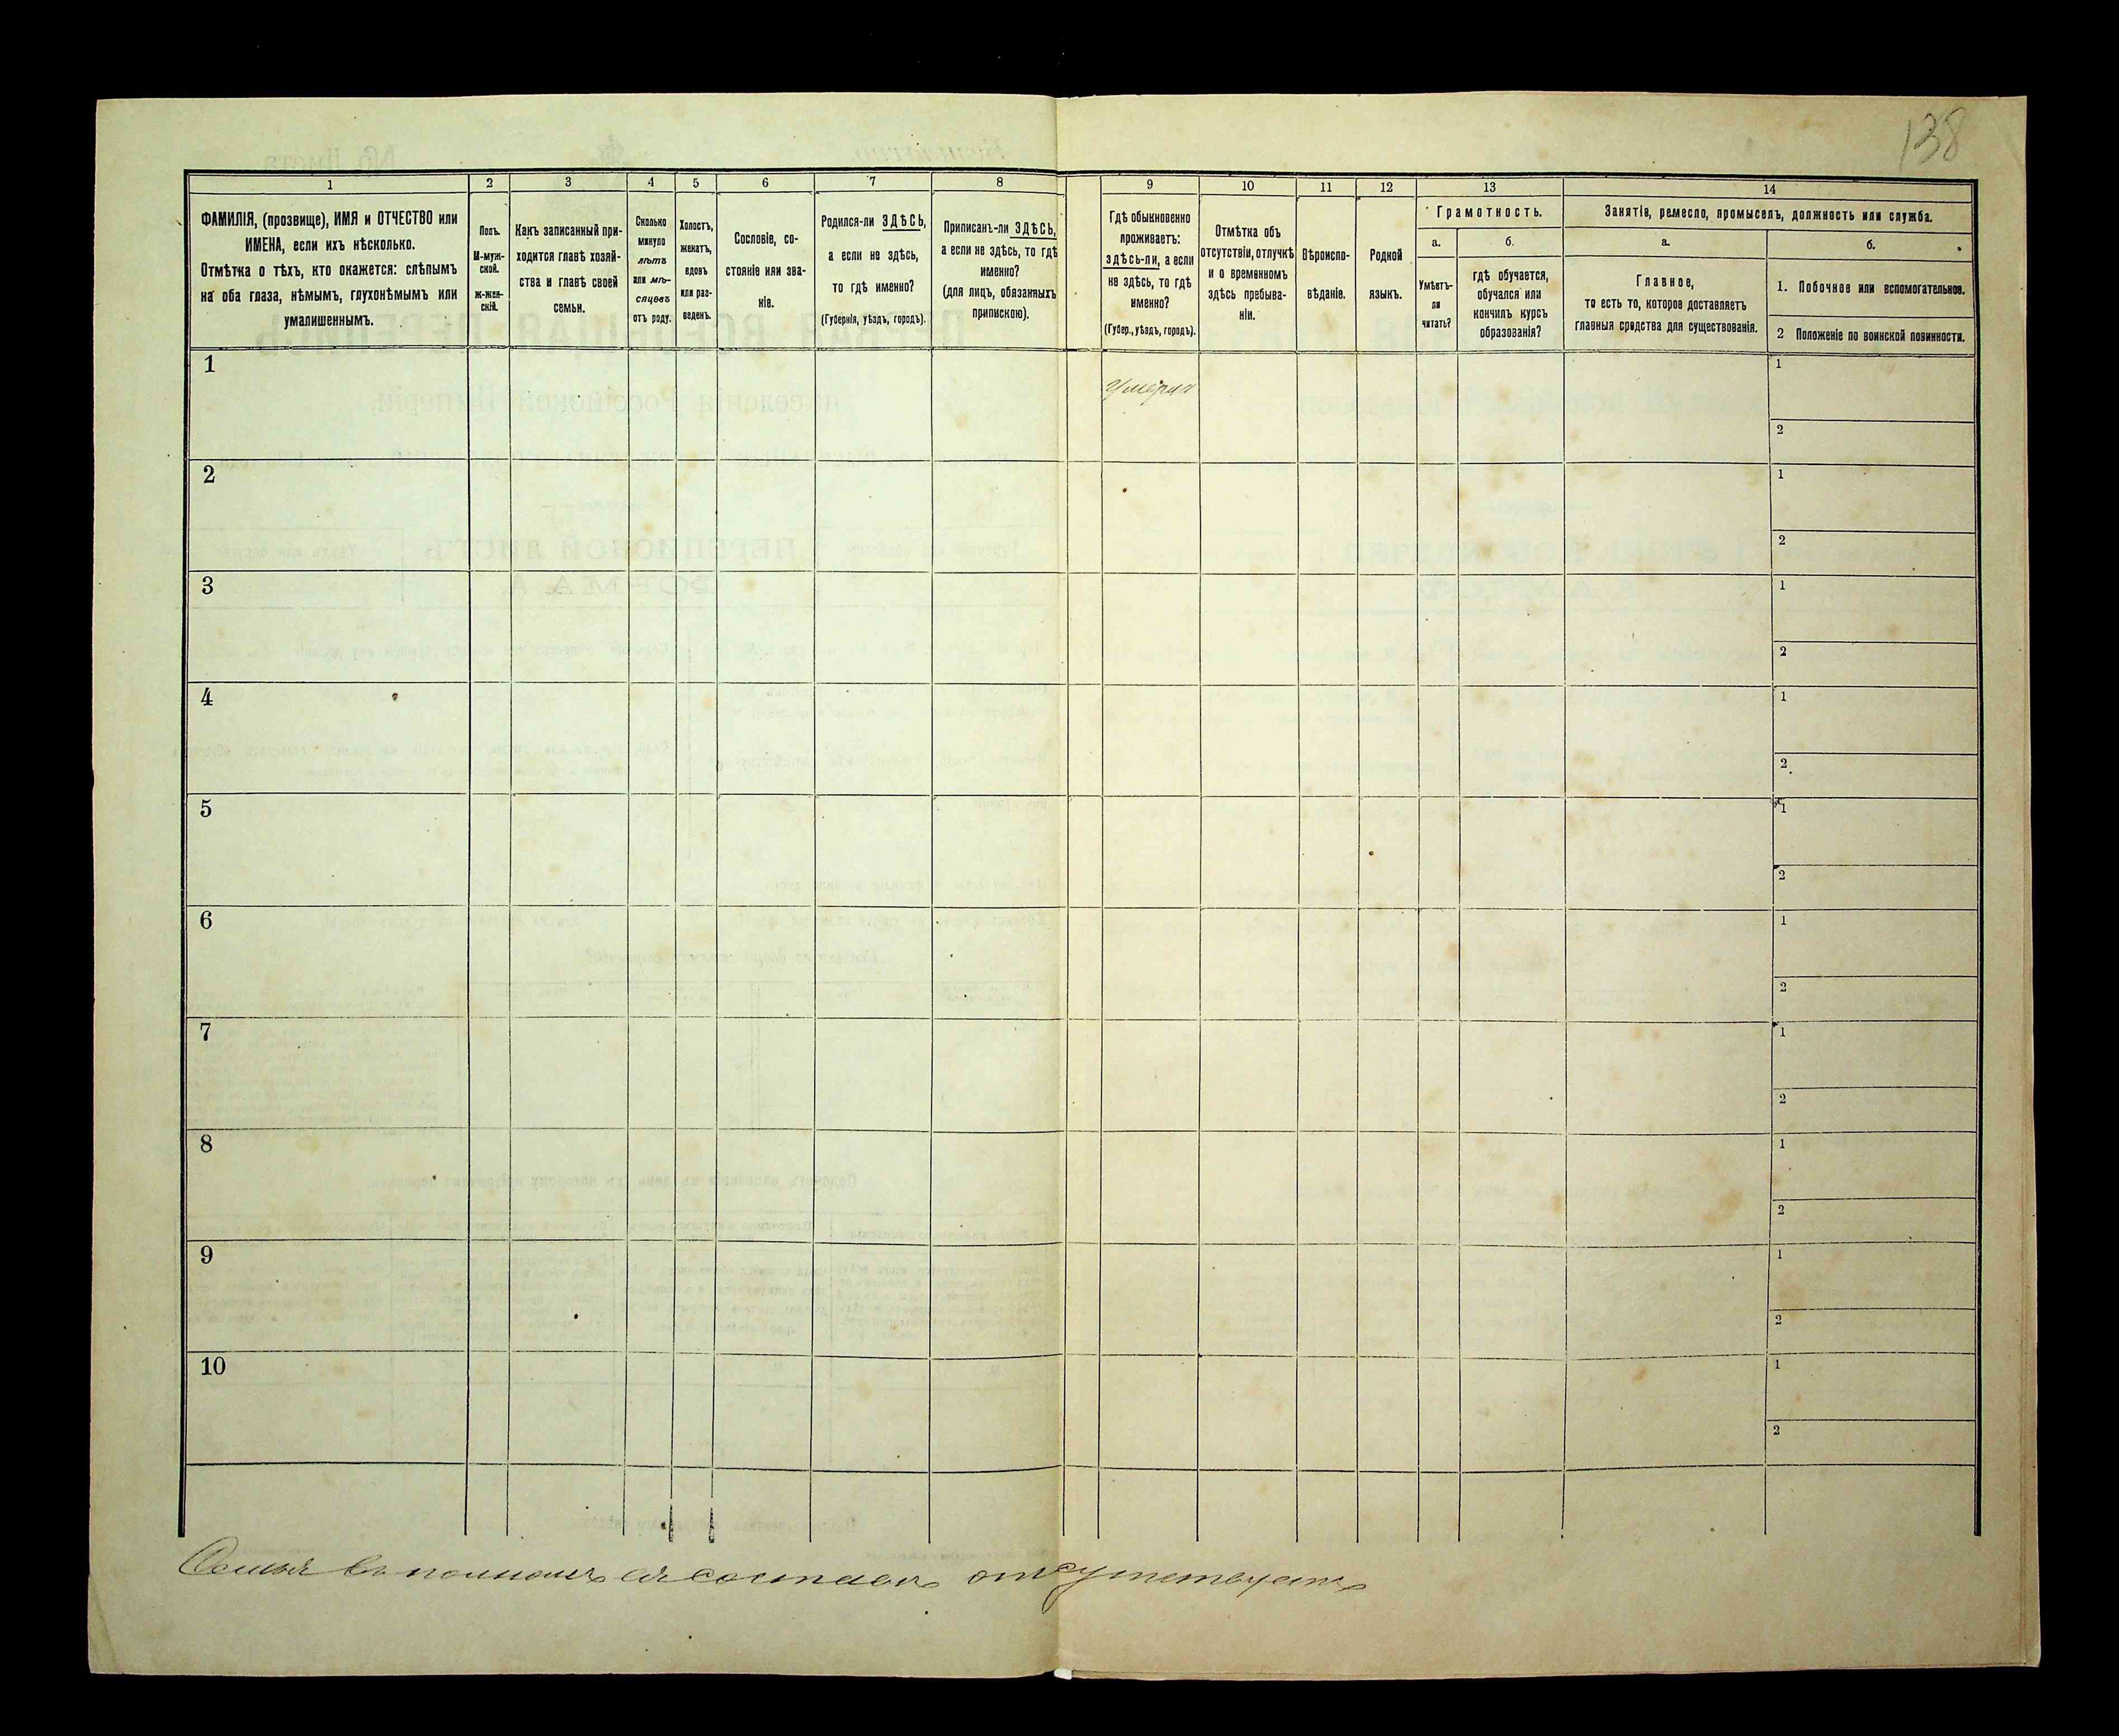 138
1
2
3
4
5
6
7
8
9
10
11
12
13
14
ФАМИЛІЯ, (прозвище), ИМЯ и ОТЧЕСТВО или
ИМЕНА, если ихъ нѣсколько.
Отмѣтка о тѣхъ, кто окажется: слѣпымъ
на оба глаза, нѣмымъ, глухонѣмымъ или
умалишеннымъ.
Полъ.
М-муж-
ской.
ж-жен-
скій.
Какъ записанный при-
ходится главѣ хозяй-
ства и главѣ своей
семьи.
Сколько
минуло
лѣтъ
или мѣ-
сяцевъ
отъ роду.
Холостъ,
женатъ,
вдовъ
или раз-
веденъ.
Сословіе, со-
стояніе или зва-
ніе.
Родился-ли ЗДѢСЬ,
а если не здѣсь,
то гдѣ именно?
(Губернія, уѣздъ, городъ).
Приписанъ-ли ЗДѢСЬ,
а если не здѣсь, то гдѣ
именно?
(для лицъ, обязанныхъ
припискою).
Гдѣ обыкновенно
проживаетъ:
здѣсь-ли, а если
не здѣсь, то гдѣ
именно?
(Губер., уѣздъ, городъ).
Отмѣтка объ
отсутствіи, отлучкѣ
и о временномъ
здѣсь пребыва-
ніи.
Вѣроиспо-
вѣданіе.
Родной
языкъ.
Грамотность.
а.
б.
Умѣетъ-
ли
читать?
гдѣ обучается,
обучался или
кончилъ курсъ
образованія?
Занятіе, ремесло, промыселъ, должность или служба.
а.
б.
Главное,
то есть то, которое доставляетъ
главныя средства для существованія.
1. Побочное или вспомогательное.
2 Положеніе по воинской повинности.
1
1
2
2
1
2
3
1
2
4
1
2
5
1
2
6
1
2
7
1
2
8
1
2
9
1
2
10
1
2
Семья въ полномъ ея составѣ отсутствуетъ